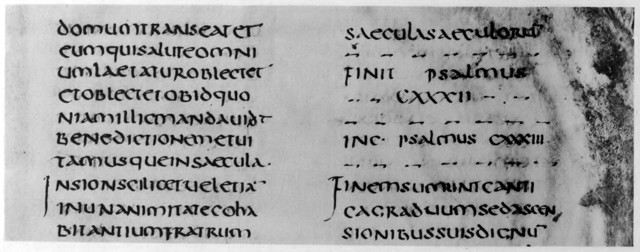 DOMUMTRANSEATET
EUMQUISALUTEOMNI
UMLAETATUROBLECTET
ETOBLECTETOBIDQUO
NIAMILLICMANDAUIDT
BENEDICTIONEMETUI
TAMUSQUEINSAECULA·
INSIONSCILICETUELETIA
INUNANIMITATECOHA
BITANTIUMFRATRUM
SAECULASAECULORUM
FINIT PSALMUS
CXXXII
INC· PSALMUS CXXXIII
FINEMSUMUNTCANTI
CAGRADUUMSEDASCEN
SIONIBUSSUISDIGNU